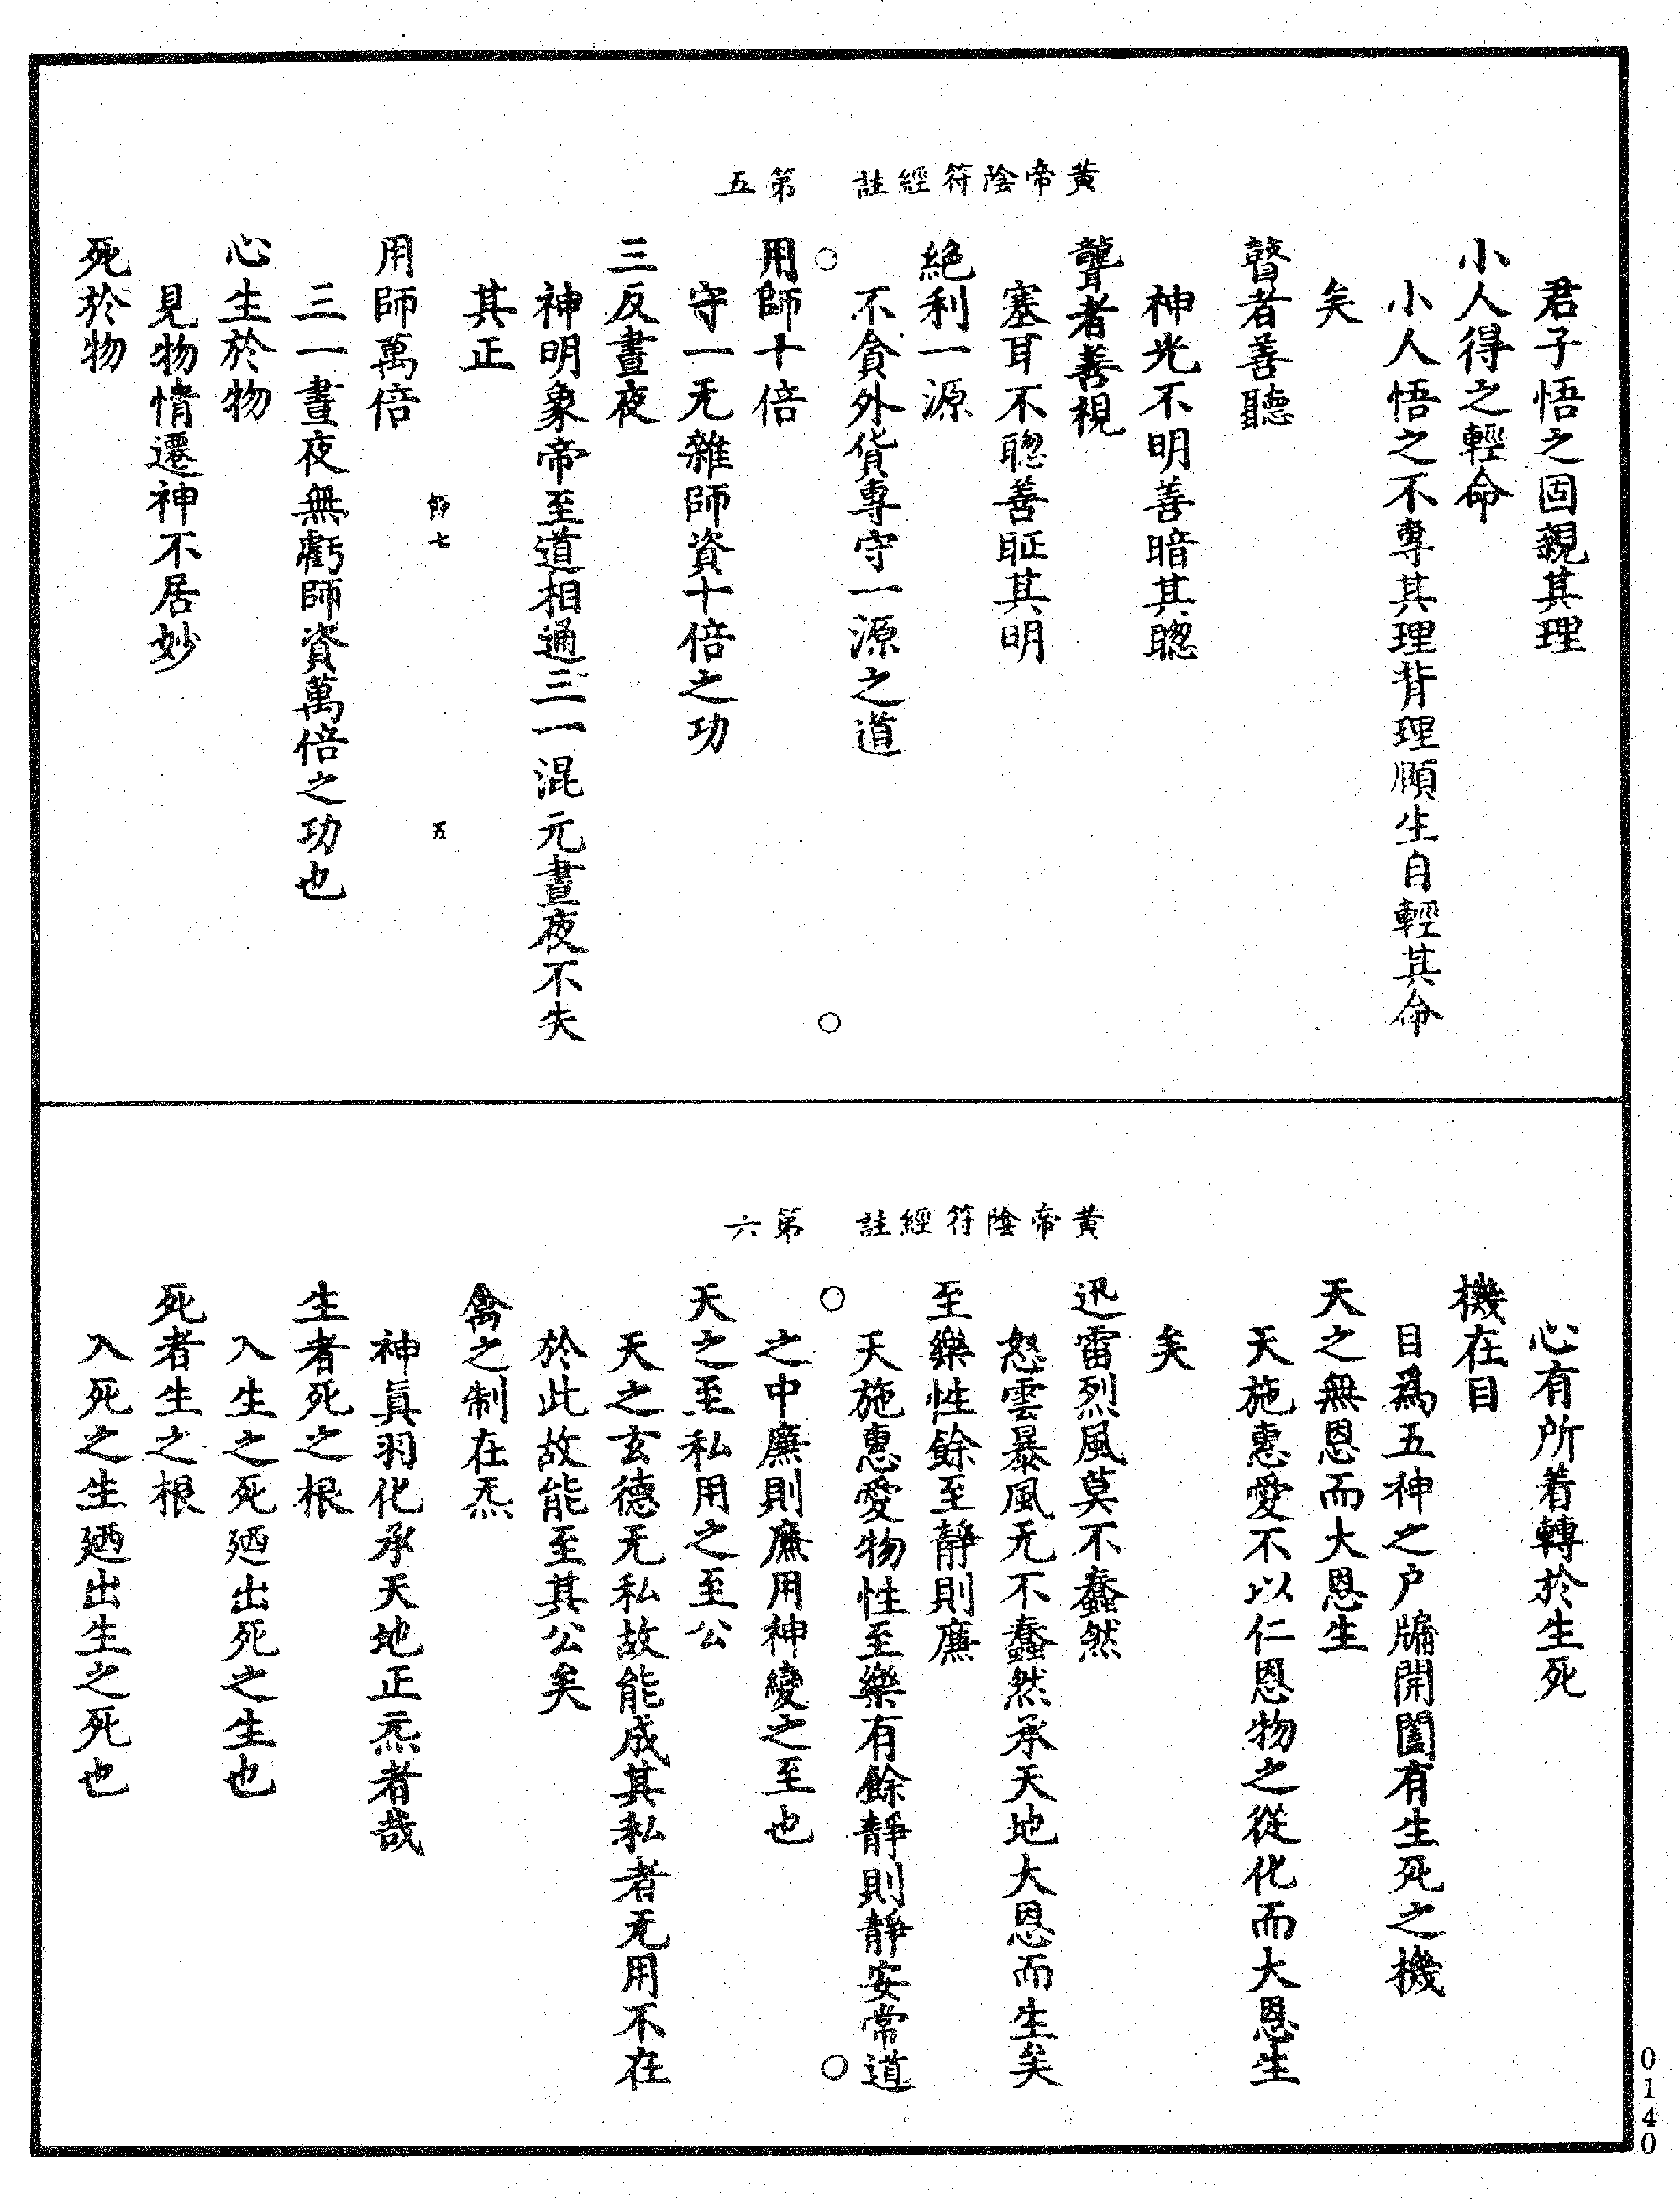 黃帝陰符經註　第五
君子悟之固親其理
小人得之輕命
小人悟之不專其理背理順生自輕其命
矣
瞽者善聽
神光不明善暗其聰
聾者善視
塞耳不聰善眐其明
絕利一源
不貪外貨專守一源之道
○　○
用師十倍
守一无雜師資十倍之功
三反晝夜
神明象帝至道相通三一混元晝夜不失
其正
　七　五
用師萬倍
三一晝夜無虧師資萬倍之功也
心生於物
見物情遷神不居妙
死於物
黃帝陰符經註　第六
心有所着轉於生死
機在目
目為五神之戶牖開闔有生死之機
天之無恩而大恩生
天施惠愛不以仁恩物之從化而大恩生
矣
迅雷烈風莫不蠢然
怒雲暴風无不蠢然承天地大恩而生矣
至樂性餘至靜則廉
天施惠愛物性至樂有餘靜則靜安常道
○　○
之中廉則廉用神變之至也
天之至私用之至公
天之玄德无私故能成其私者无用不在
於此故能至其公矣
禽之制在炁
神真羽化承天地正炁者哉
生者死之根
入生之死廼出死之生也
死者生之根
入死之生廼出生之死也
0140